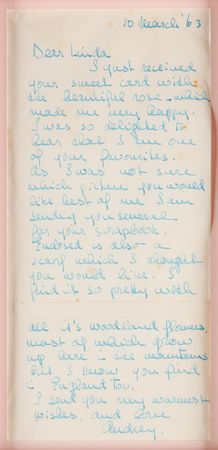 10 March '63
Dear Linda
I just received
your sweet card with
the beautiful rose which
made me very happy.
I was so delighted to
hear that I am one
of your favourites.
As I was not sure
which picture you would
like best of me I am
sending you several
for your scrapbook.
Enclosed is also a
scarf which I thought
you would like. I
find it so pretty with
all it's woodland flowers,
most of which grow
up here in the mountains
but I know you find
in England too.
I send you my warmest
wishes, and love
Audrey.